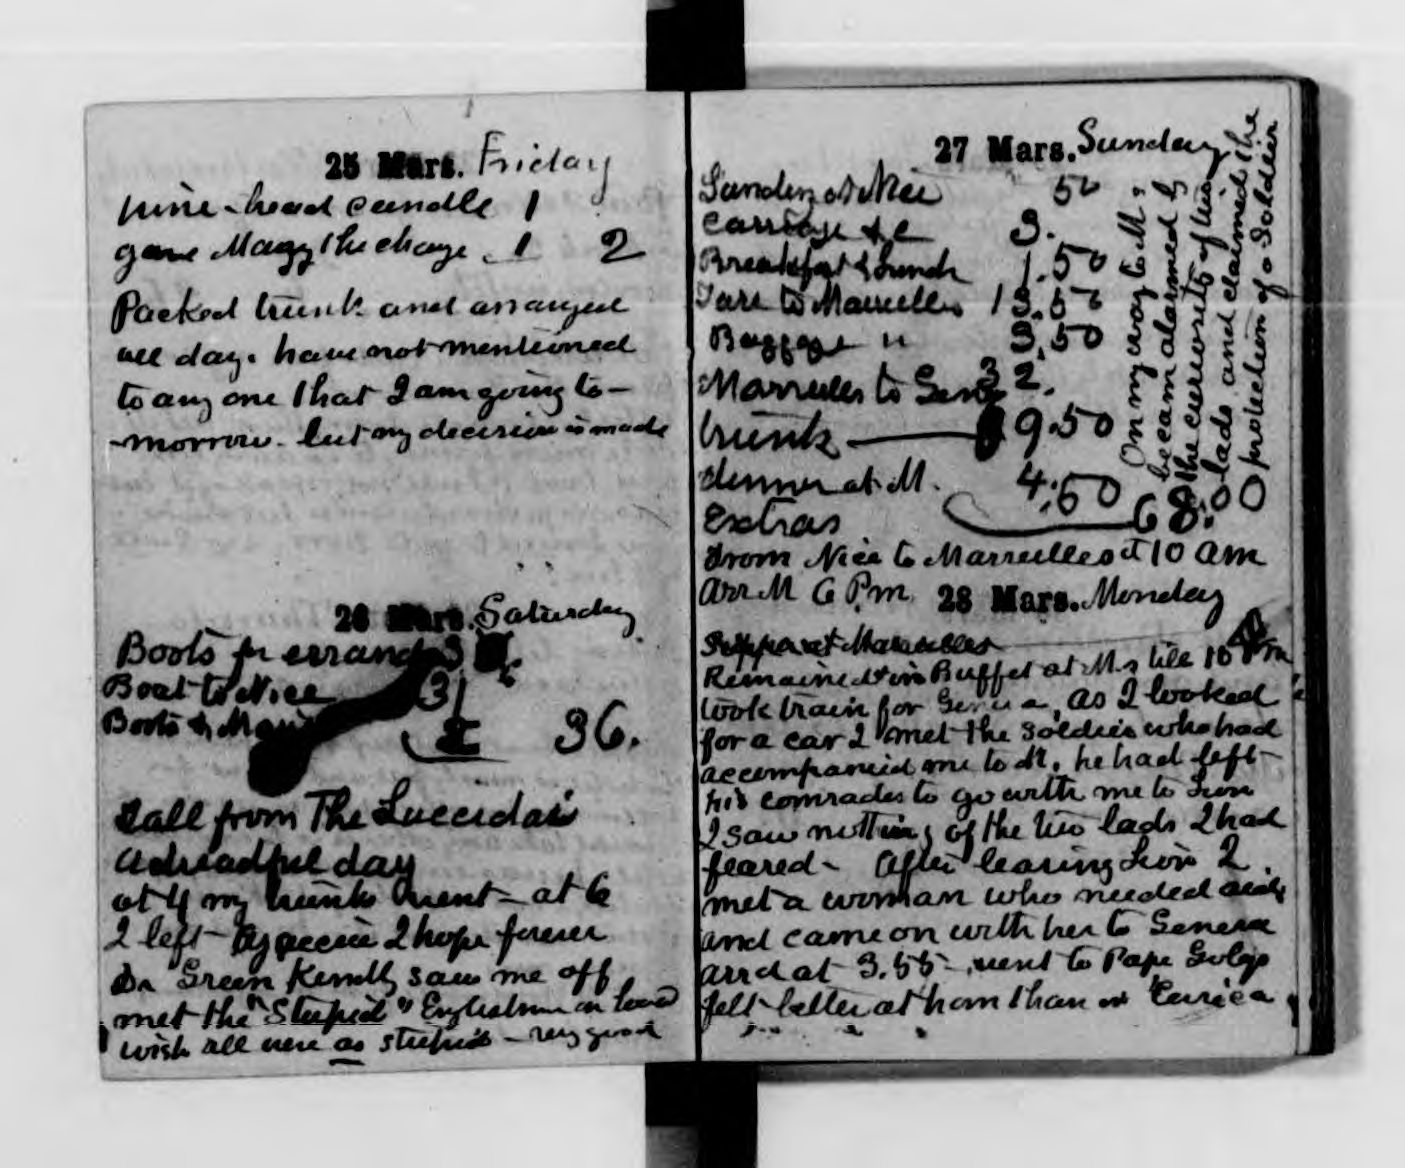 25 Mars. Friday
nine-head candle 1
gave Maggy the charge 1 2
Packed trunk and arranged
all day. have not mentioned
to any one that I am going to-
-morrow. but my decision is made
26 Mars. Saturday
Boots for errands 3
Boat to Nice 31
Boots & 2 36.
Call from The Lucedais
a dreadful day
at 4 my trunks went - at 6
I left I hope forever
Dr Green kindly saw me off
met the "Stupid" Englishman on board
wish all were as stupid - very good
27 Mars. Sunday
Sunday at Nice 50
Carriage &c 3.
Breakfast & Lunch 1.50
Fare to Marseilles 13.50
Baggage " 3.50
Marseilles to Gene 32.
trunk — 9.50
dinner at M. 4.50
Extras 68.00
from Nice to Marseilles at 10 am
Arr M 6 P.m.
On my way to M:
becam alarmed by
the curiousity of two
lads and claimed the
protection of a Soldier
28 Mars. Monday
Supper at Marseilles
Remained in Buffet at M. till 10 Pm
took train for Geneva, As I looked
for a car I met the Soldier who had
accompanied me to M. he had left
his comrades to go with me to Lion
I saw nothing of the two lads I had
feared - After leaving Lion I
met a woman who needed aid
and came on with her to Geneva
arrd at 3.55 - went to Pape Golay
felt better at hom than in Corsica